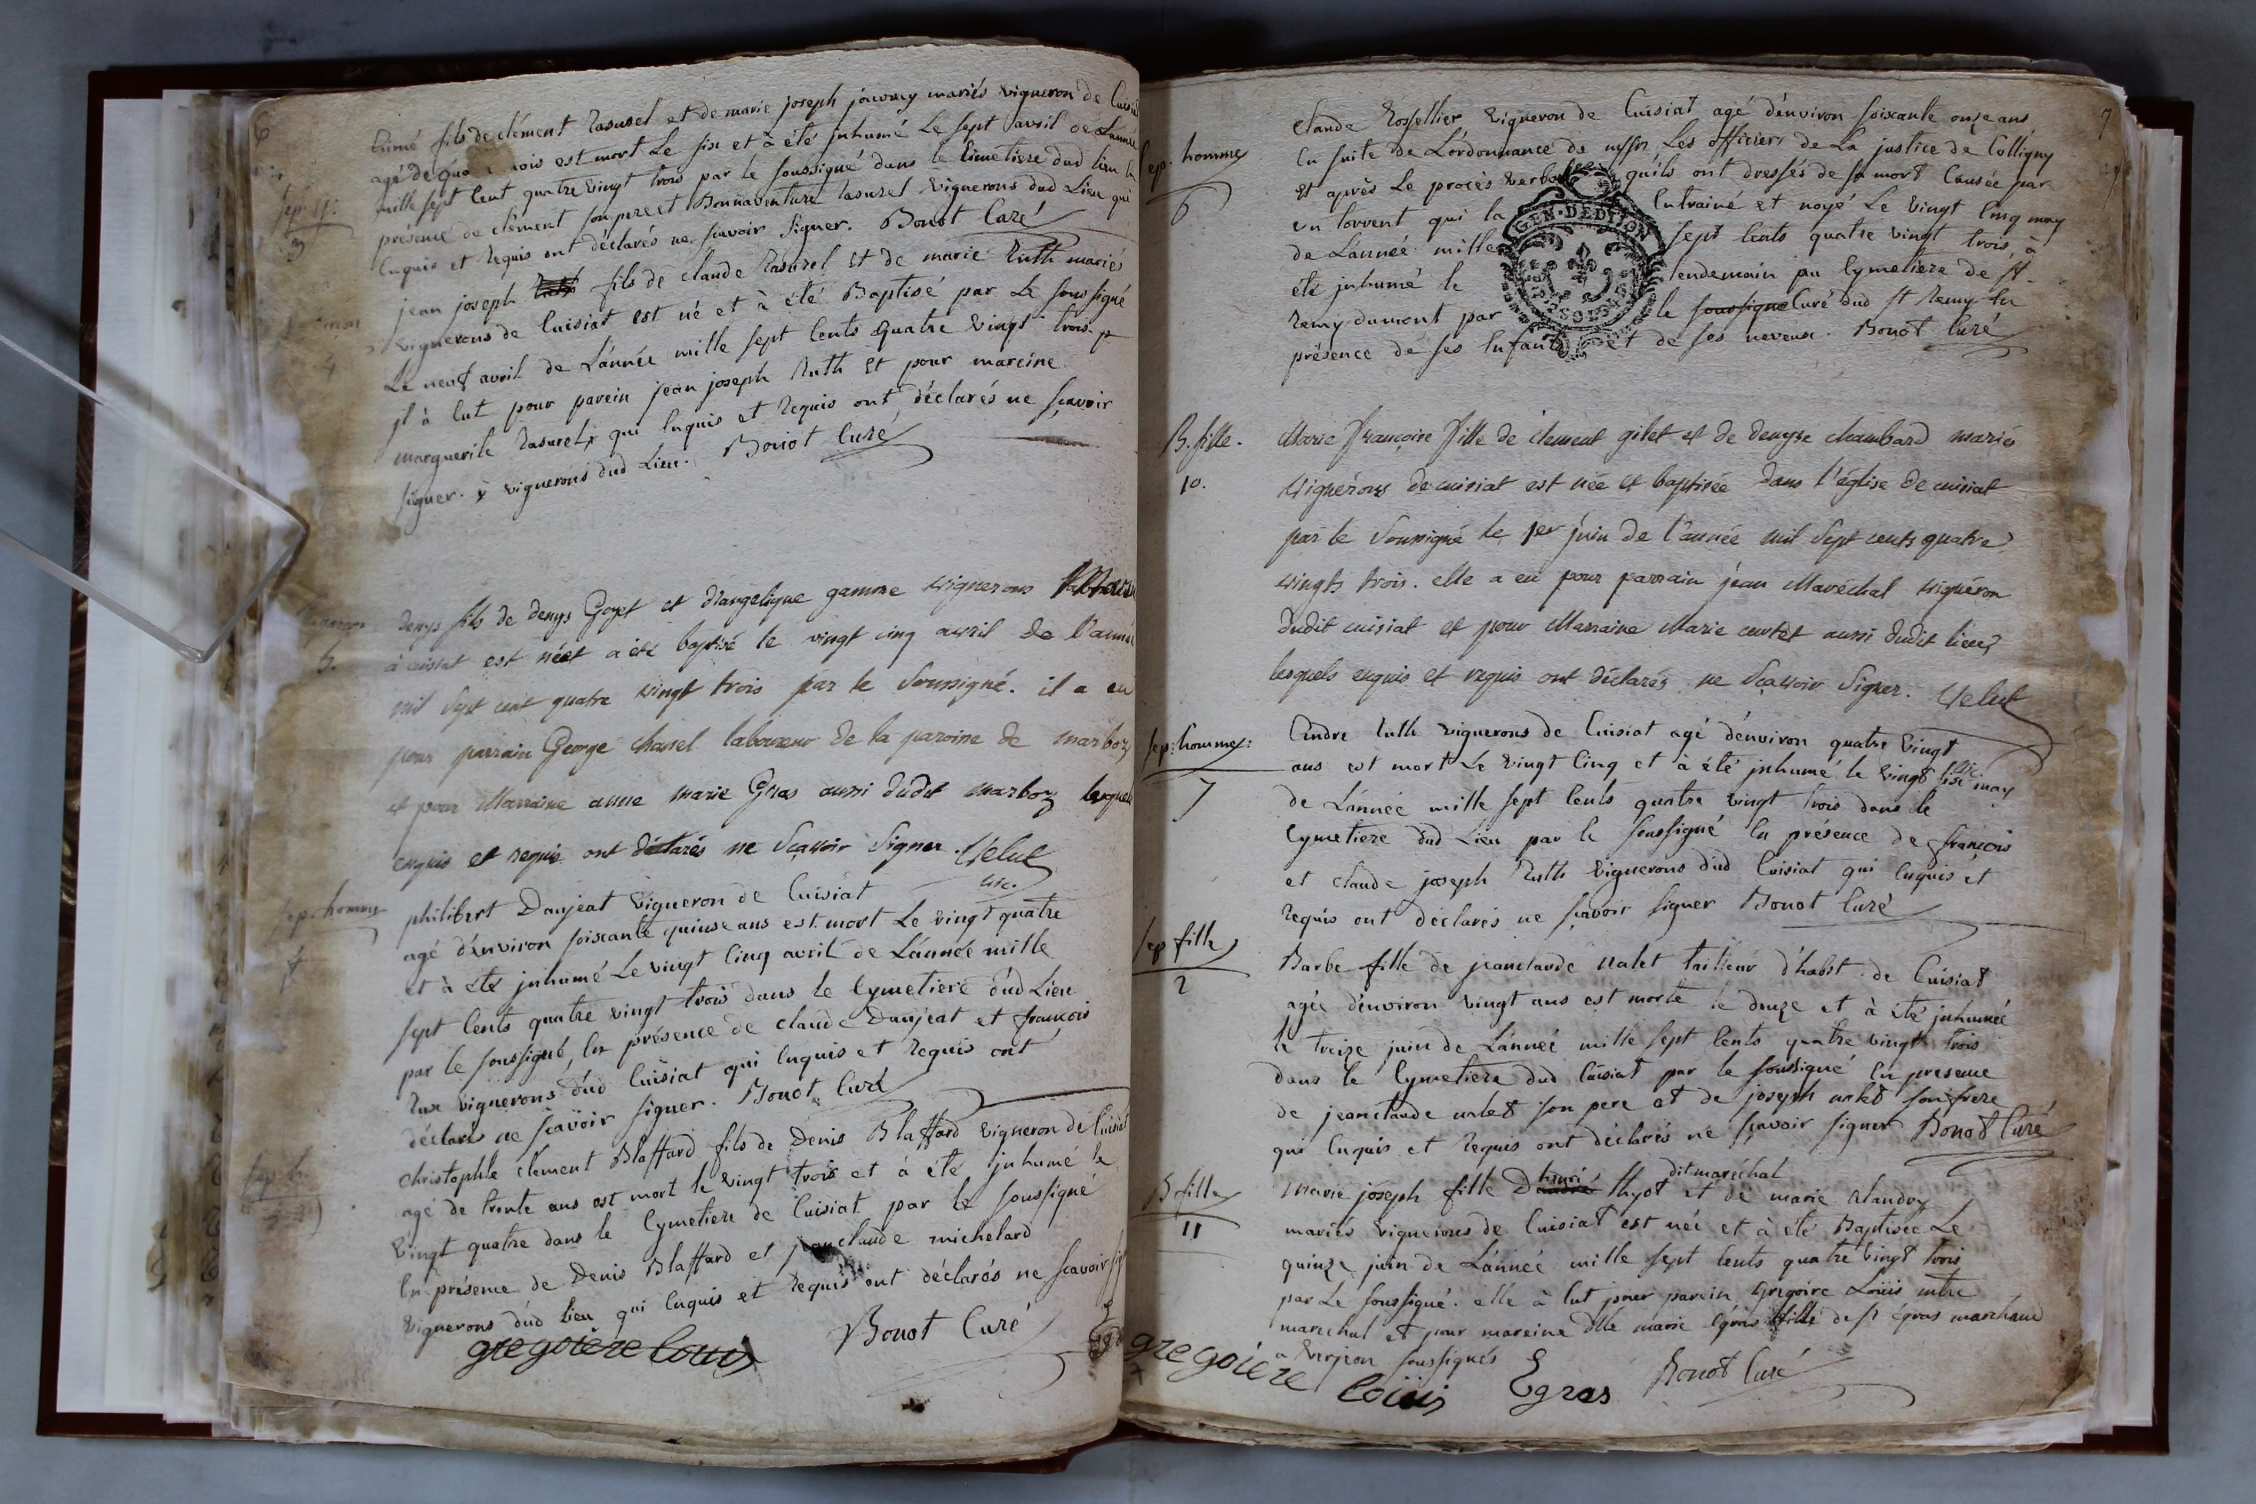 6
fils de clément Rasurel et de marie joseph mariés vigneron de
agé de mois est mort Le six et à été jnhumé Le sept avril de L'année
mille sept Cent quatre vingt trois par le soussigné dans le Cimetiere dud lieu En
présence de clément son pere et Bonnaventure rasurel vignerons dud Lieu qui
Enquis et Requis ont déclarés ne sçavoir signer. Bonot Curé
sep.
3
jean joseph fils de claude Rasurel et de marie Ruth mariés
vignerons de Cuisiat est né et à été Baptisé par Le soussigné
Le neuf avril de L'année mille sept Cents Quatre Vingt trois
jl à Eut pour parein jean joseph Ruth Et pour mareine
marguerite Rasurel x qui Enquis et Requis ont déclarés ne sçavoir
signer. x vignerons dud Lieu. Bonot Curé
4
denys fils de denys Goyet et d'angelique vignerons
à cuisiat est né et a été baptisé le vingt cinq avril de l'année
mil sept cent quatre vingt trois par le soussigné. il a eu
pour parrain George Chanel laboureur de la paroisse de marboz
et pour Marraine anne marie Gras aussi dudit marboz lesquels
enquis et requis ont déclarés ne Sçavoir Signer. Velut
vic.
5.
sep. homme
philibert Danjeat Vigneron de Cuisiat
agé d'environ soixante quinse ans est mort Le vingt quatre
et à été jnhumé Le vingt Cinq avril de L'année mille
sept Cents quatre vingt trois dans le Cymetiere dud Lieu
par le soussigné, En présence de claude Danjeat et françois
vignerons dud Cuisiat qui Enquis et Requis ont
déclarés ne sçavoir signer. Bonot Curé
christophle clement Blaffard fils de Denis Blaffard vigneron de Cuisiat
agé de trente ans est mort le vingt trois et à été jnhumé le
vingt quatre dans le Cymetiere de Cuisiat par le soussigné
En présence de Denis Blaffard et jeanclaude michelard
vignerons dud Lieu qui Enquis et Requis ont déclarés ne sçavoir
Bonot Curé
gregoiere louis
7
sep. homme
6
claude Rossellier vigneron de Cuisiat agé d'environ soixante onze ans
En suite de L'ordonnance de mssrs Les officiers de La justice de Colligny
et après Le procès verbal qu'ils ont dressés de sa mort Causée par
un torrent qui la Entrainé et noyé Le vingt Cinq may
de L'année mille sept Cents quatre vingt trois, à
été jnhumé le lendemain au Cymetiere de st.
Remy dumont par le soussigné Curé dud st Remy En
présence de ses Enfants et de ses neveux. Bonot Curé
GEN. DE DIJON
B. fille.
10.
Marie françoise fille de clement gilet et de denyse chambard mariés
vignérons de cuisiat est née et baptisée dans l'église de cuisiat
par le soussigné le 1er juin de l'année mil sept cents quatre
vingts trois. elle a eu pour parrain jean Maréchal vignéron
dudit cuisiat et pour Marraine Marie aussi dudit lieu,
lesquels enquis et requis ont déclarés ne Sçavoir Signer. Velut
vic.
sep: homme:
7
André Ruth vignerons de Cuisiat agé d'environ quatre Vingt
ans est mort Le vingt Cinq et à été jnhumé le Vingt six may
de L'année mille sept Cents quatre vingt trois dans le
Cymetiere dud Lieu par le soussigné En présence de françois
et claude joseph Ruth vignerons dud Cuisiat qui Enquis et
Requis ont déclarés ne sçavoir signer Bonot Curé
sep fille
2
Barbe fille de jeanclaude valet tailleur d'habit de Cuisiat
agée d'environ vingt ans est morte le douze et à été jnhumée
le treize juin de L'année mille sept Cents quatre vingt trois
dans le Cymetiere dud Cuisiat par le soussigné En presence
de jeanclaude valet son pere et de joseph valet son frere
qui Enquis et Requis ont déclarés ne sçavoir signer Bonot Curé
B fille
11
marie joseph fille D henri thyot dit maréchal et de marie Blandey
mariés vignerons de Cuisiat est née et à été Baptisée Le
quinze juin de L'année mille sept Cents quatre vingt trois
par Le soussigné. elle à Eut pour parein Grégoire Loüis mtre
marechal et pour mareine dlle marie Egras fille de sr égras marchand
a Verjon soussignés
gregoiere loüis Egras Bonot Curé